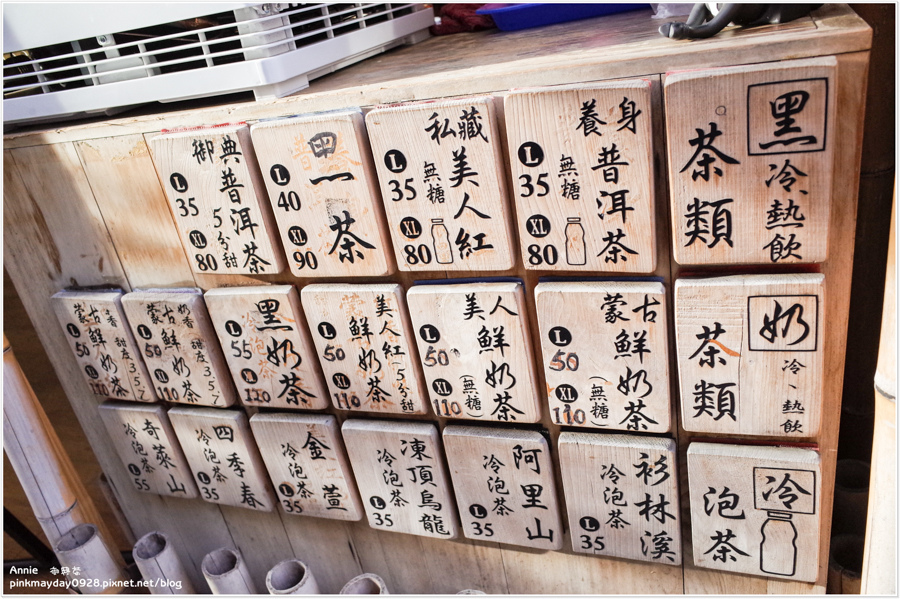 黑茶類
冷、熱飲
養身普洱茶
無糖
L 35
XL 80
私藏美人紅
無糖
L 35
XL 80
茶
L 40
XL 90
御典普洱茶
5分甜
L 35
XL 80
奶茶類
冷、熱飲
蒙古鮮奶茶
(無糖)
L 50
XL 110
美人鮮奶茶
(無糖)
L 50
XL 110
美人紅鮮奶茶
(5分甜)
L 50
XL 110
黑奶茶
L 55
XL 120
蒙古鮮奶茶
奶香
甜度35%
L 50
XL 110
蒙古鮮奶茶
L 50
冷泡茶
杉林溪
冷泡茶
L 35
阿里山
冷泡茶
L 35
凍頂烏龍
冷泡茶
L 35
金萱
冷泡茶
L 35
四季春
冷泡茶
L 35
奇萊山
冷泡茶
L 55
Annie
pinkmayday0928.pixnet.net/blog